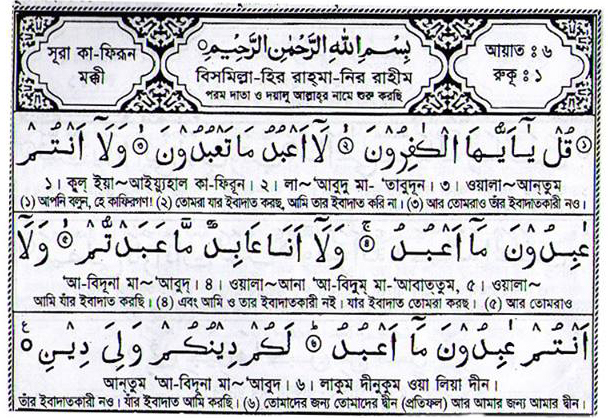 সূরা কা-ফিরূন
মক্কী
بِسْمِ اللهِ الرَّحْمٰنِ الرَّحِيْمِ
বিসমিল্লা-হির রাহ্মা-নির রাহীম
পরম দাতা ও দয়ালু আল্লাহর নামে শুরু করছি
আয়াত : ৬
রুকূ : ১
قُلْ يٰٓاَيُّهَا الْكٰفِرُوْنَ ۝ لَآ اَعْبُدُ مَا تَعْبُدُوْنَ ۝ وَلَآ اَنْتُمْ
১। কুল্ ইয়া~আইয়্যুহাল কা-ফিরূন। ২। লা~ 'আবুদু মা- 'তাবুদূন। ৩। ওয়ালা~আন্তুম
(১) আপনি বলুন, হে কাফিরগণ! (২) তোমরা যার ইবাদাত করছ, আমি তার ইবাদাত করি না। (৩) আর তোমরাও তাঁর ইবাদাতকারী নও।
عٰبِدُوْنَ مَآ اَعْبُدُ ۝ وَلَآ اَنَا عَابِدٌ مَّا عَبَدْتُّمْ ۝ وَلَآ
'আ-বিদূনা মা~ 'আবুদ্। ৪। ওয়ালা~আনা 'আ-বিদুম্ মা-'আবাত্তুম, ৫। ওয়ালা~
আমি যাঁর ইবাদাত করছি। (৪) এবং আমি ও তার ইবাদাতকারী নই। যার ইবাদাত তোমরা করছ। (৫) আর তোমরাও
اَنْتُمْ عٰبِدُوْنَ مَآ اَعْبُدُ ۝ لَكُمْ دِيْنُكُمْ وَلِيَ دِيْنِ ۝
আন্তুম 'আ-বিদূনা মা~ 'আবুদ। ৬। লাকুম দীনুকুম ওয়া লিয়া দীন।
তাঁর ইবাদাতকারী নও। যাঁর ইবাদাত আমি করছি। (৬) তোমাদের জন্য তোমাদের দ্বীন (প্রতিফল) আর আমার জন্য আমার দ্বীন।